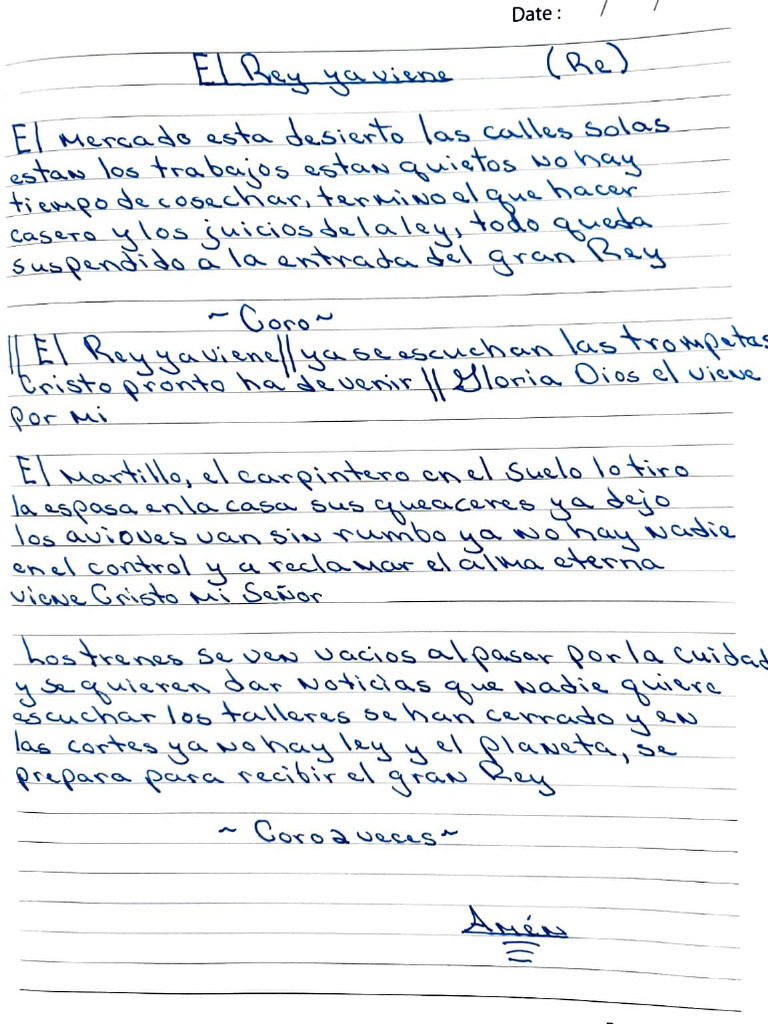 Date : / /
El Rey ya viene (Re)
El mercado esta desierto las calles solas
estan los trabajos estan quietos no hay
tiempo de cosechar, termino el que hacer
casero y los juicios de la ley, todo queda
suspendido a la entrada del gran Rey
~ Coro ~
|| El Rey ya viene || ya se escuchan las trompetas
Cristo pronto ha de venir || Gloria Dios el viene
por mi
El martillo, el carpintero en el suelo lo tiro
la espasa en la casa sus queaceres ya dejo
los aviones van sin rumbo ya no hay nadie
en el control y a reclamar el alma eterna
viene Cristo mi Señor
Los trenes se ven vacios al pasar por la cuidad
y se quieren dar noticias que nadie quiere
escuchar los talleres se han cerrado y en
las cortes ya no hay ley y el planeta, se
prepara para recibir el gran Rey
~ Coro 2 veces ~
Amén